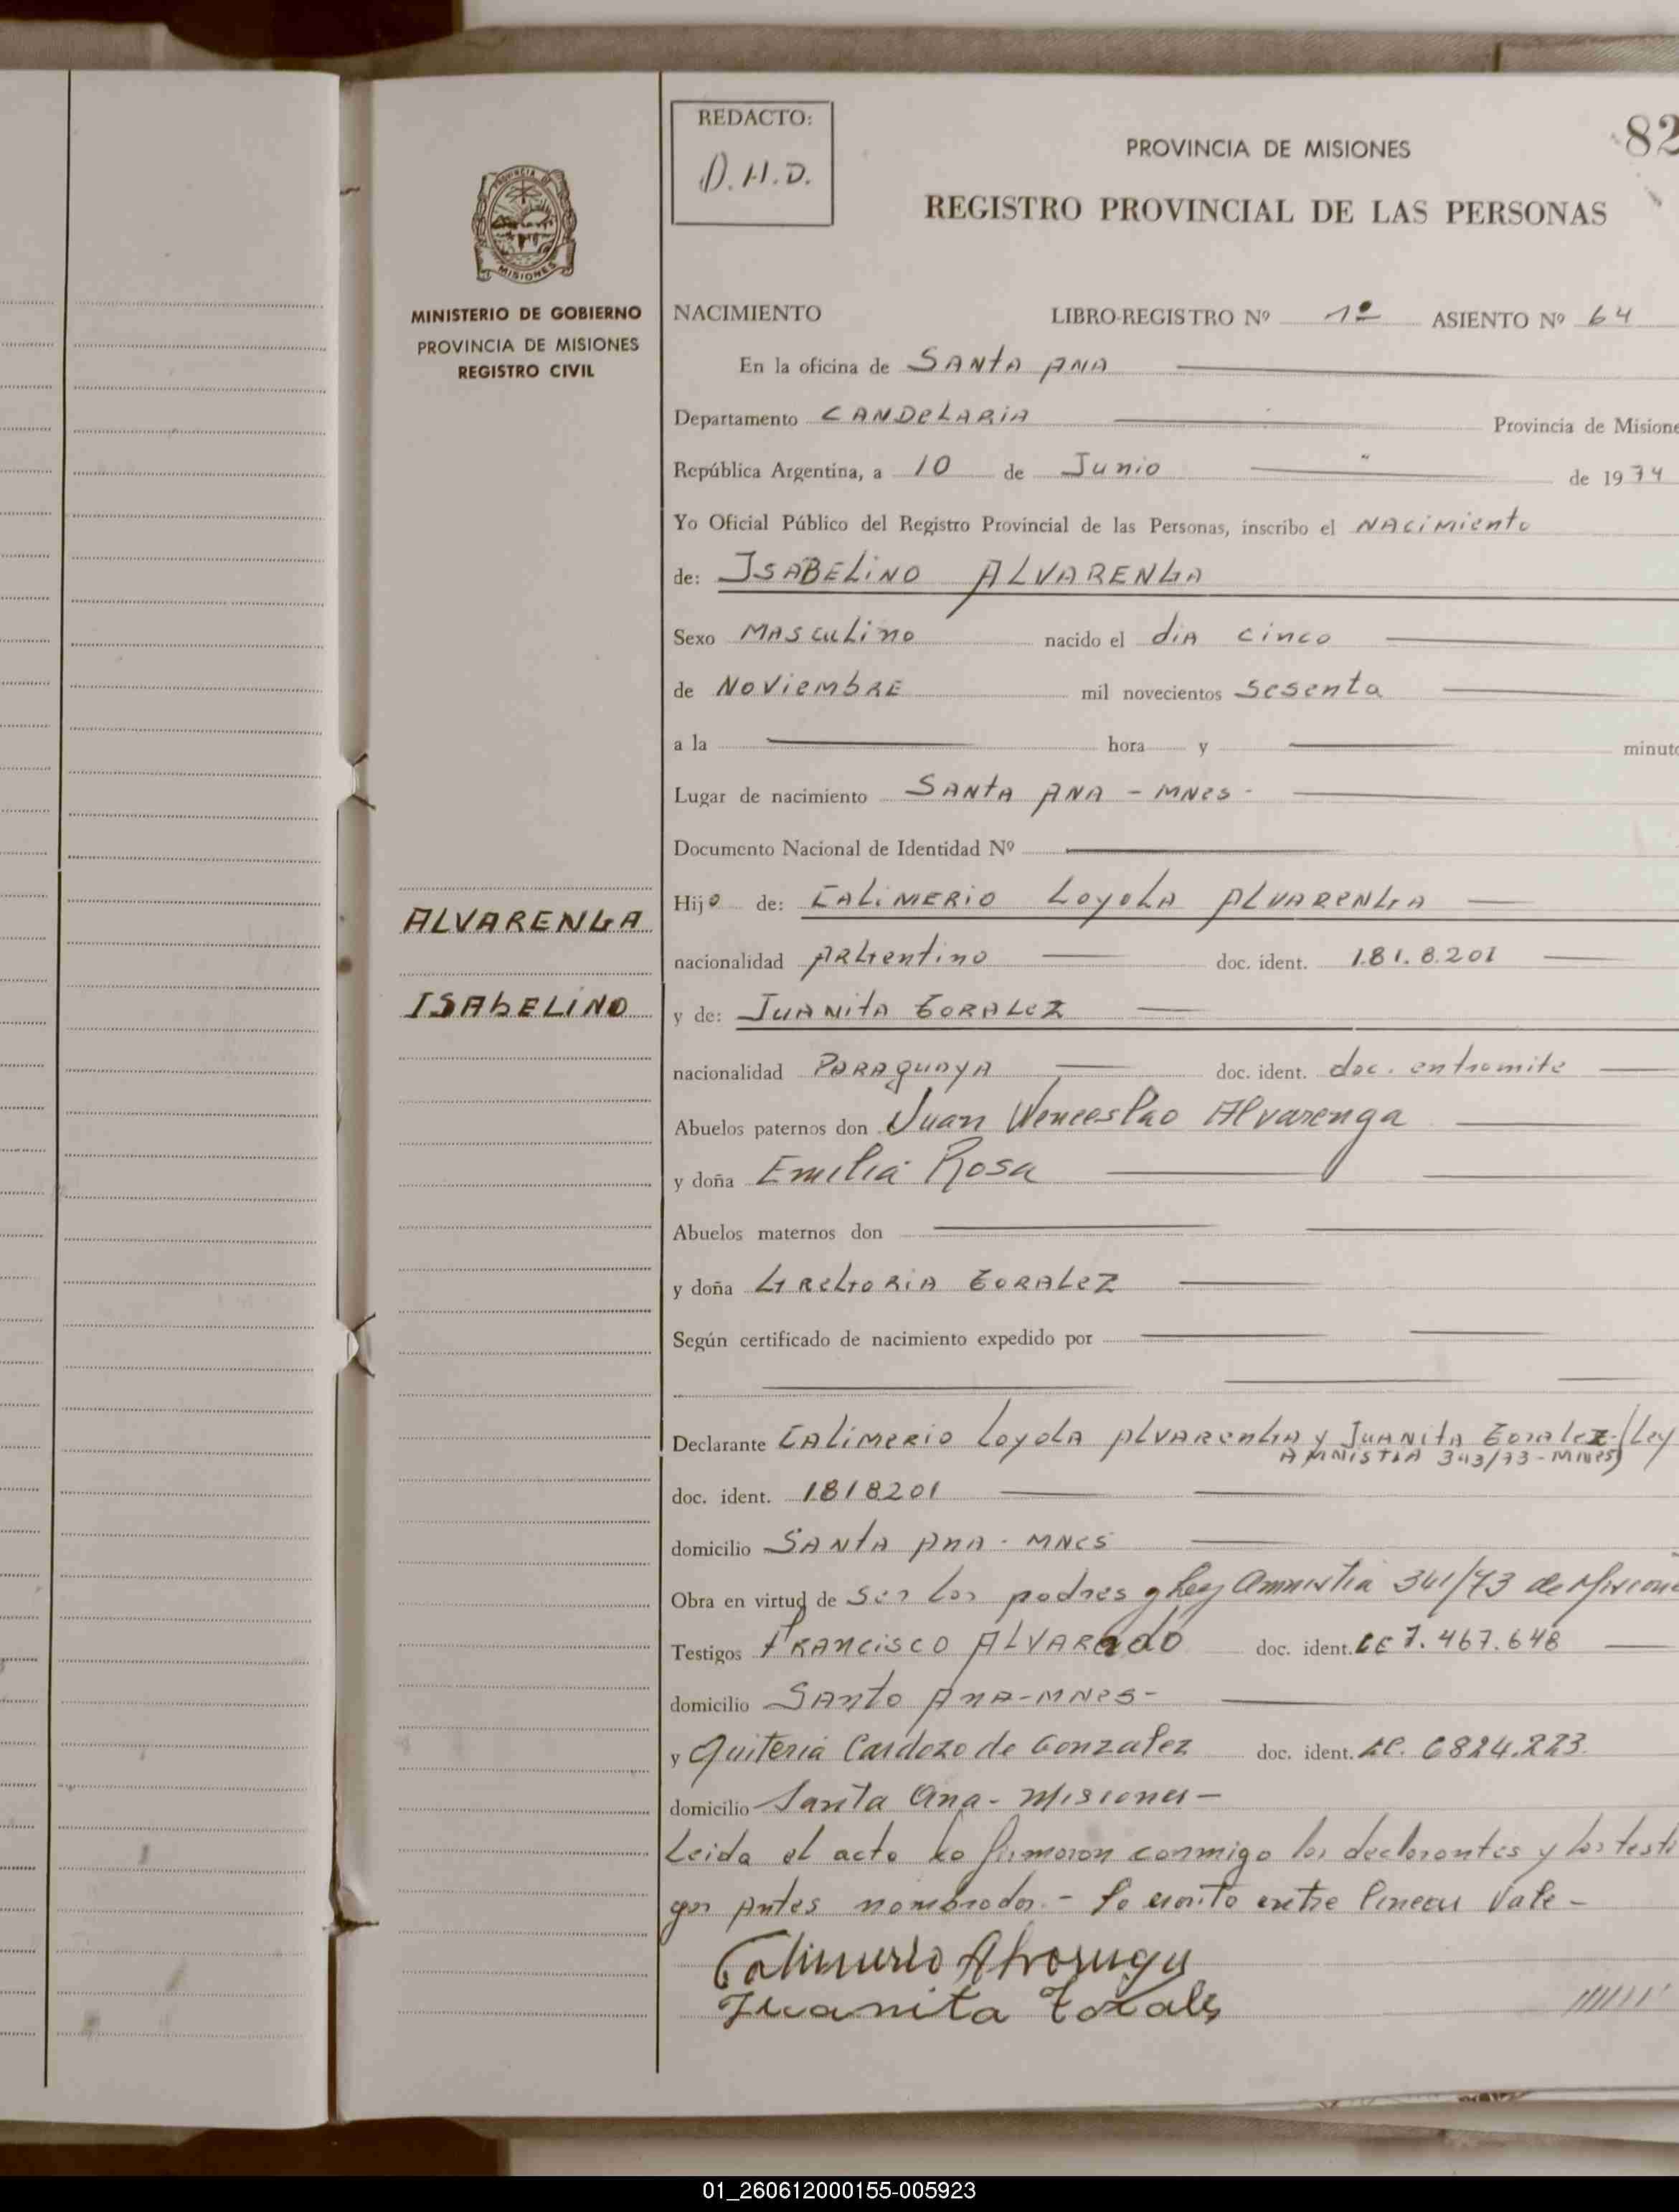 REDACTO:
D.H.D.
82
PROVINCIA DE MISIONES
REGISTRO PROVINCIAL DE LAS PERSONAS
PROVINCIA DE
MISIONES
MINISTERIO DE GOBIERNO
PROVINCIA DE MISIONES
REGISTRO CIVIL
NACIMIENTO LIBRO-REGISTRO Nº 1º ASIENTO Nº 64
En la oficina de SANTA ANA
Departamento CANDELARIA Provincia de Misione
República Argentina, a 10 de Junio de 1974
Yo Oficial Público del Registro Provincial de las Personas, inscribo el NACimiento
de: ISABELINO ALVARENGA
Sexo MASCULino nacido el diA cinco
de NOViembRE mil novecientos sesenta
a la hora y minuto
Lugar de nacimiento SANTA ANA - MNes -
Documento Nacional de Identidad Nº
Hijo de: CALIMERIO LOYOLA ALVARENGA
ALVARENGA
nacionalidad ARGentino doc. ident. 1.81.8.201
ISAbELINO
y de: JUANITA GORALEZ
nacionalidad PARAguaYA doc. ident. doc. entramite
Abuelos paternos don Juan Wenceslao Alvarenga
y doña Emilia Rosa
Abuelos maternos don
y doña GREGORIA GORALEZ
Según certificado de nacimiento expedido por
Declarante CALIMERIO Loyola ALVARENGA y JUANITA Goralez-(Ley
AMNISTIA 343/73-MNes)
doc. ident. 1818201
domicilio SANTA ANA - MNES
Obra en virtud de Ser los padres y Ley Amnistia 341/73 de Misione
Testigos FRANCISCO ALVARADO doc. ident. CE 7.467.648
domicilio Santo Ana-MNes-
y Quiteria Cardozo de Gonzalez doc. ident. LC. 6824.223.
domicilio Santa Ana - Misiones -
Leida el acta la firmaron conmigo los declarantes y los testi
gos Antes nombrados. - Lo escrito entre lineas Vale -
Calimerio Alvarenga
Juanita Goralez
01_260612000155-005923